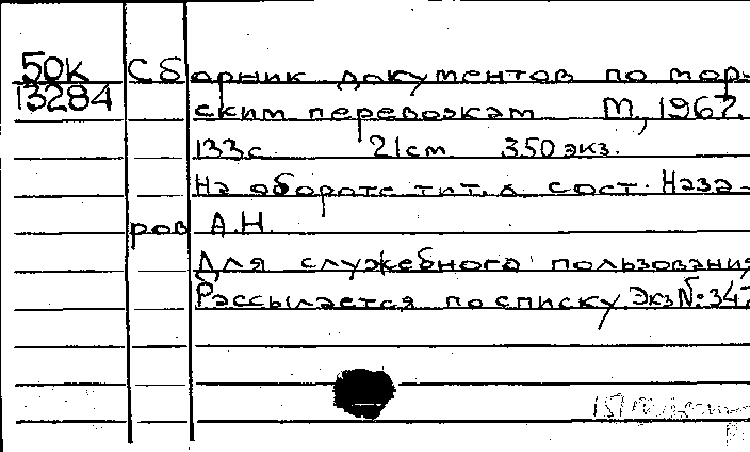 50к Сборник документов по мор-
13284 ским перевозкам М, 1967.
133с 21см 350 экз.
На обороте тит. л сост. Наза-
ров А.Н.
Для служебного пользования
Рассылается по списку Экз №: 347